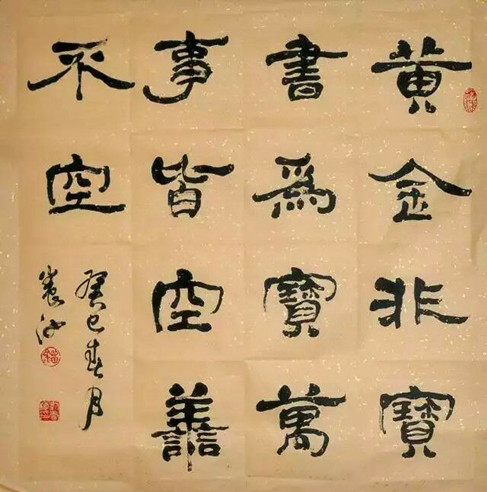 黄金非寶
書爲寶萬
事皆空譱
不空
癸巳春月